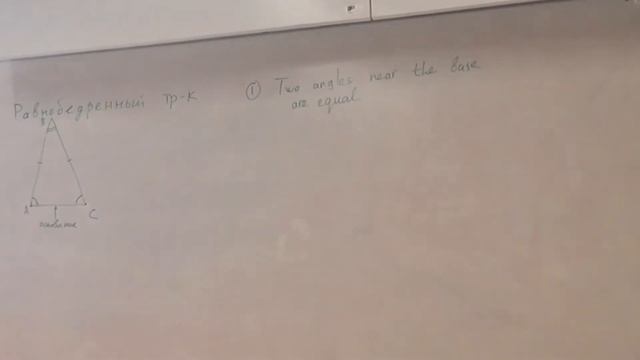 Равнобедренный тр-к
① Two angles near the base
are equal
B
A
C
основание